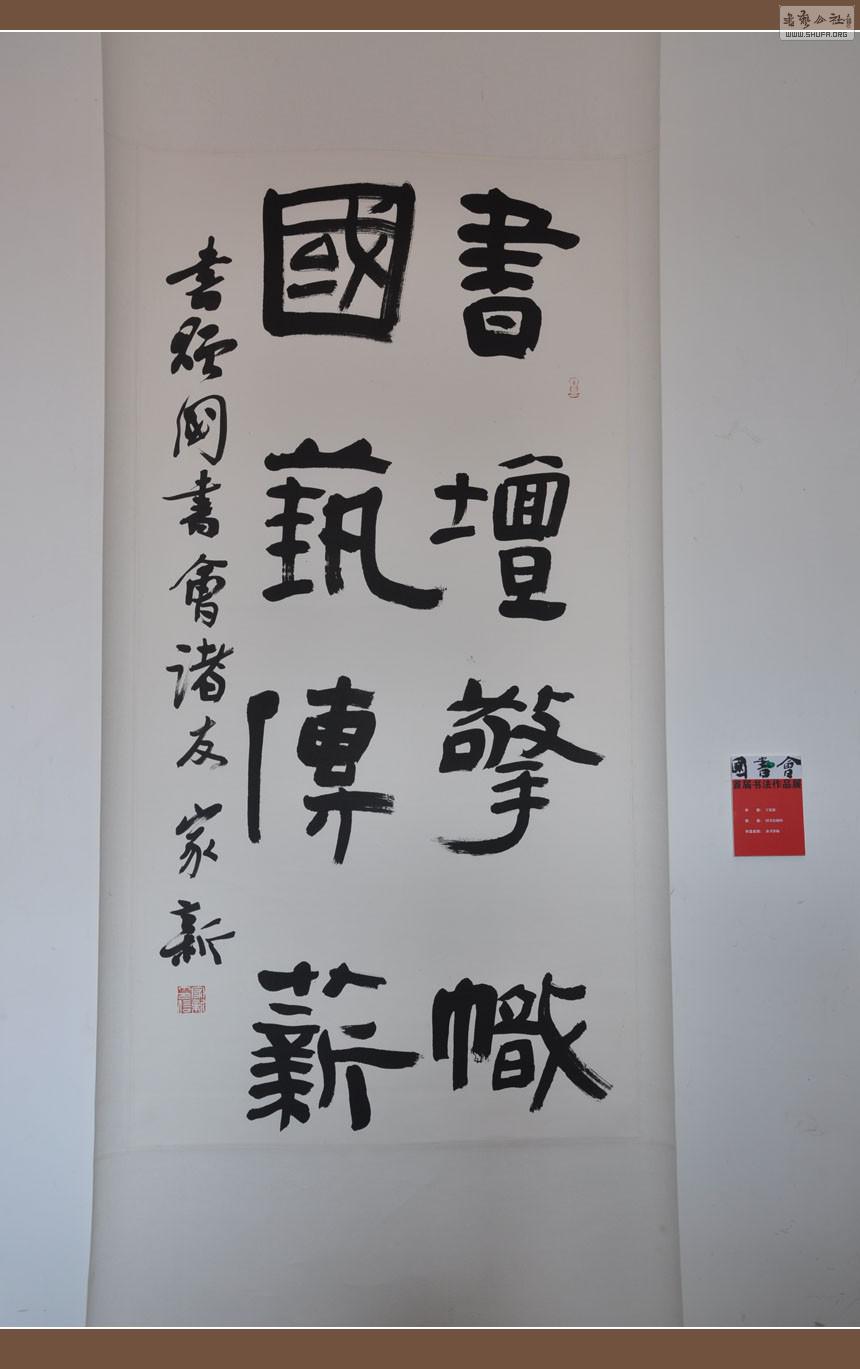 書壇擎幟
國藝傳薪
書頌國書會諸友 家新
國書會
首届书法作品展
書藝公社
WWW.SHUFA.ORG